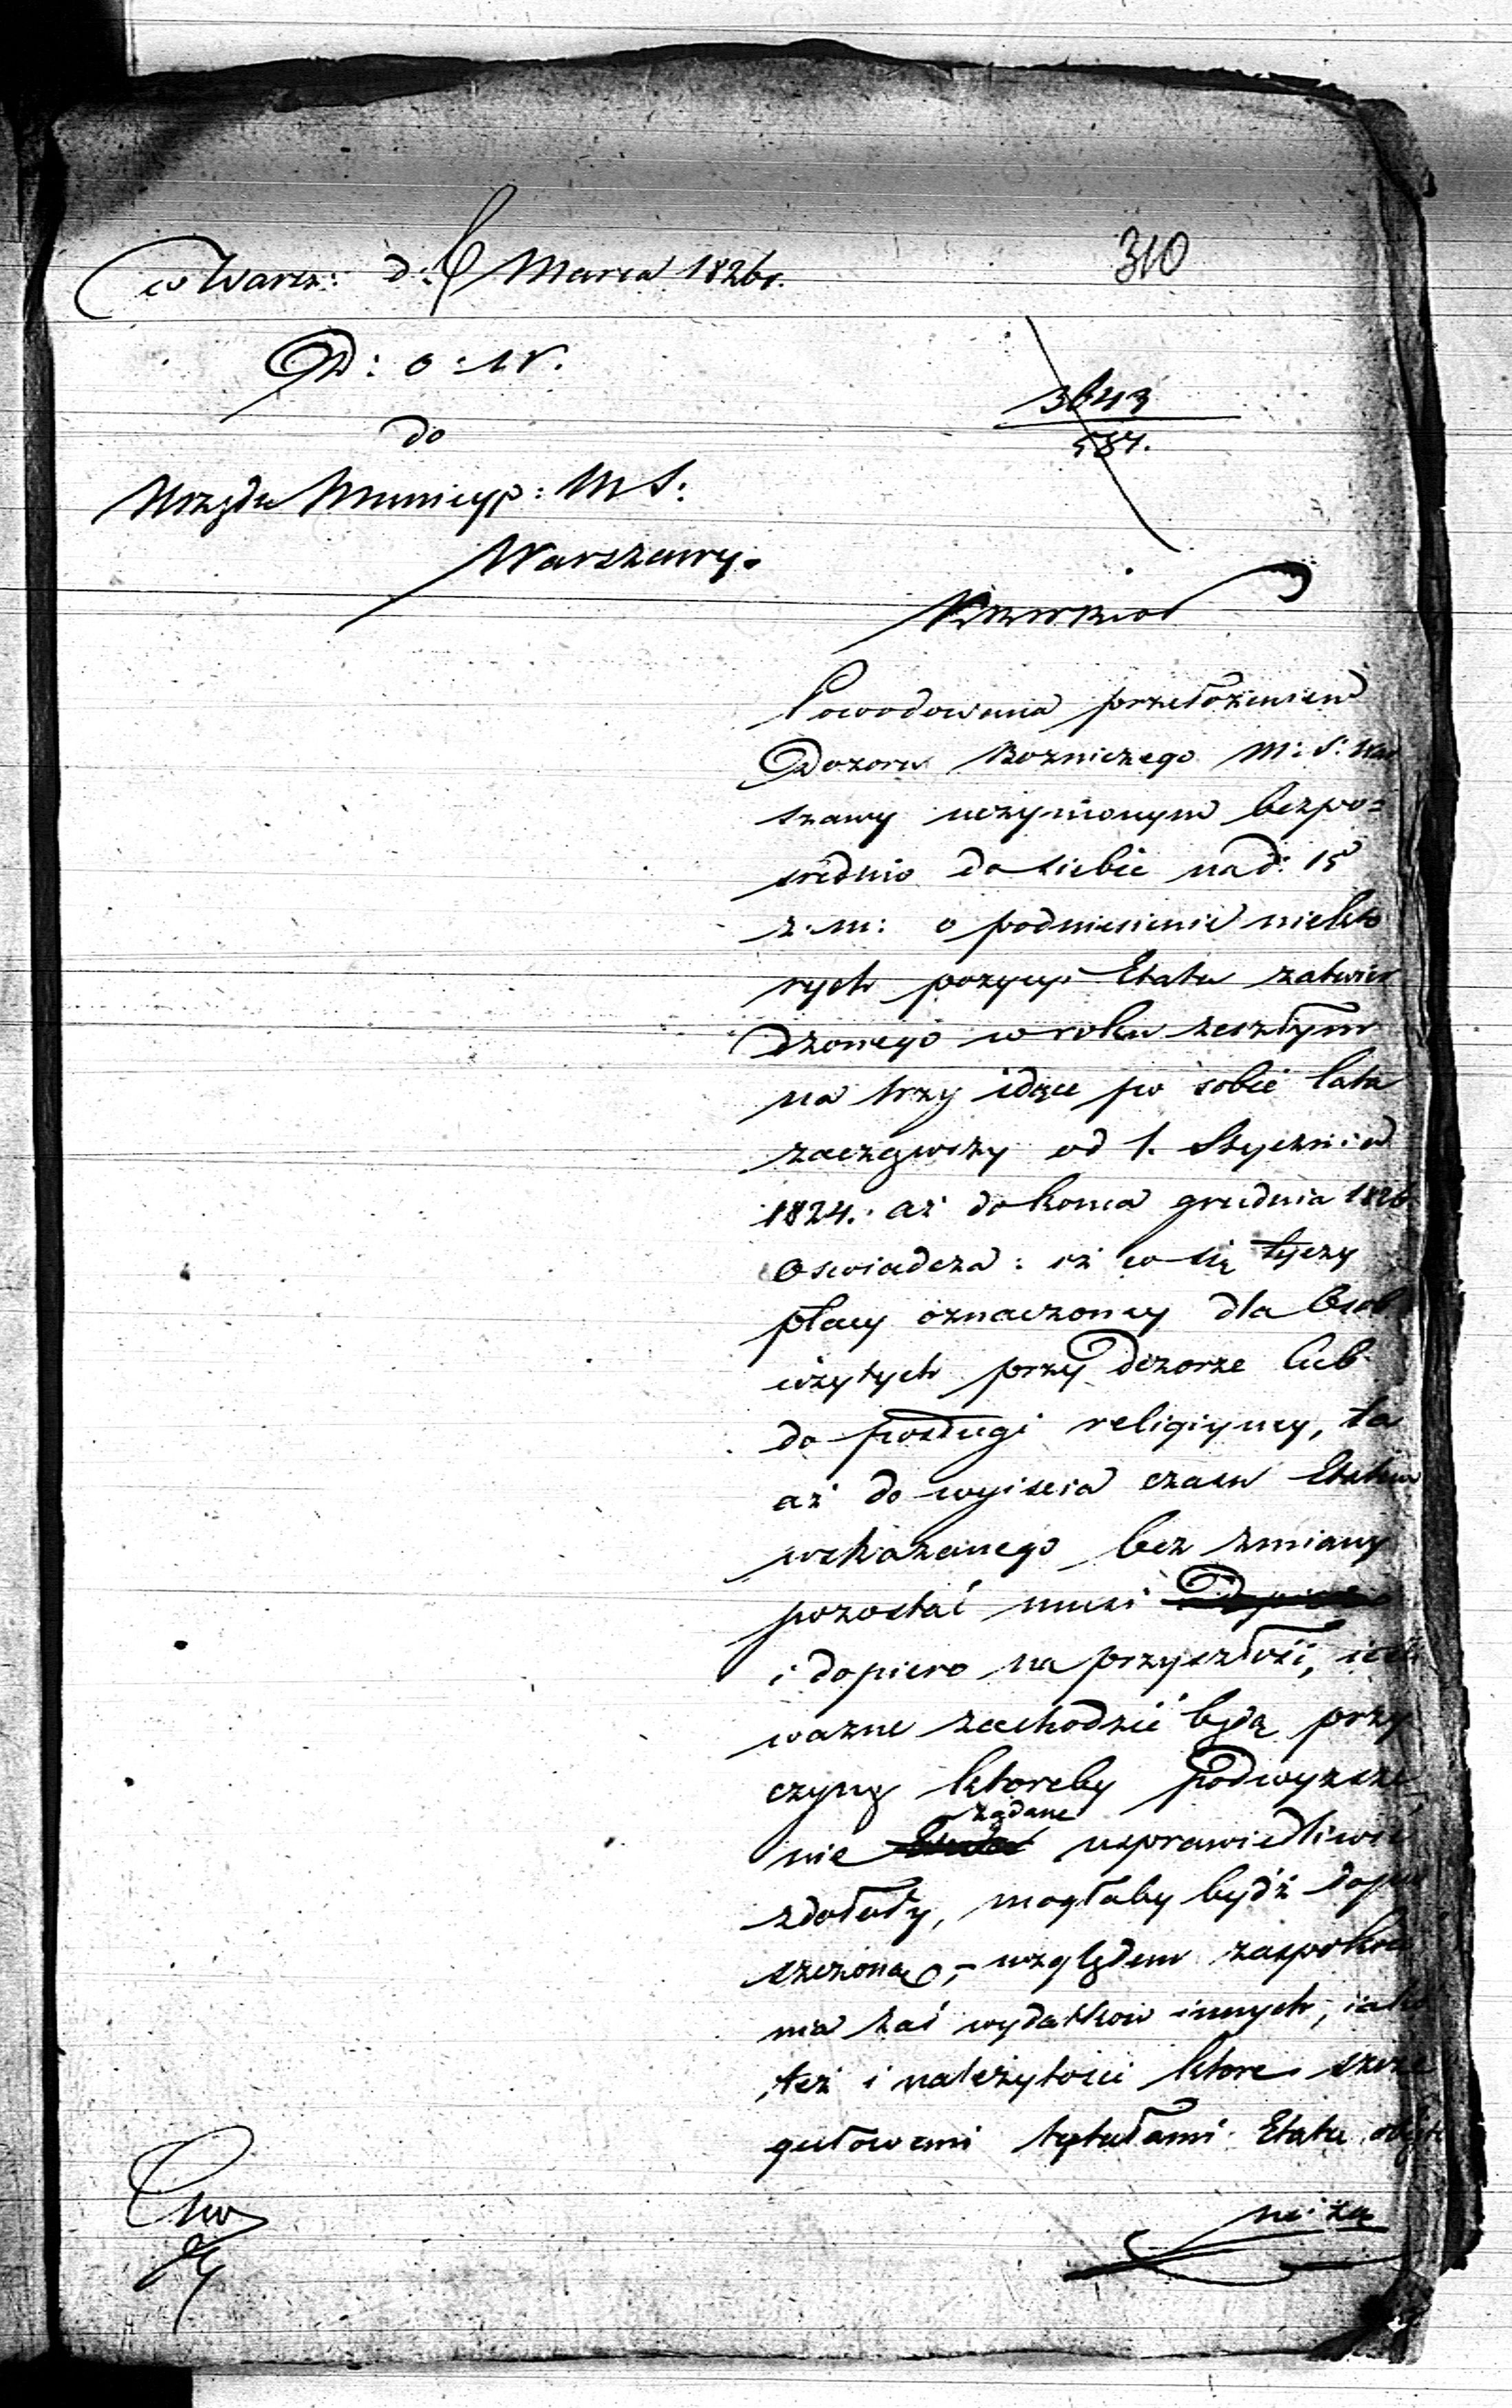 w Warsz: d: 6 Marca 1826 r.
310
do
3643
587.
Urzędu Municyp: M S:
Warszawy.
Powodowana przełożeniem
Dozoru Bozniczego M: S: War
szawy uczynionym bezpo=
srednio do siebie na d: 15
z. m: o podniesienie niekto
rych pozycyi Etatu zatwier
dzonego w roku zeszłym
na trzy idące po sobie lata
zacząwszy od 1. Stycznia
1824. aż do konca grudnia 1826
oswiadcza: iż co się tyczy
płacy oznaczoney dla Osob
użytych przy dozorze lub
do posługi religiyney, ta
aż do wyiscia czasu Etatem
wskazanego bez zmiany
pozostać musi
i dopiero na przyszłość, iesli
wazne zachodzić będą przy
czyny ktoreby podwyzsze
żądane
nie usprawiedliwić
zdołały, mogłaby bydź dopu
szczona, – względem zaspokoie
nia zaś wydatkow innych, iako
też i należytosci ktore szcze
gułowemi tytułami Etatu obięte